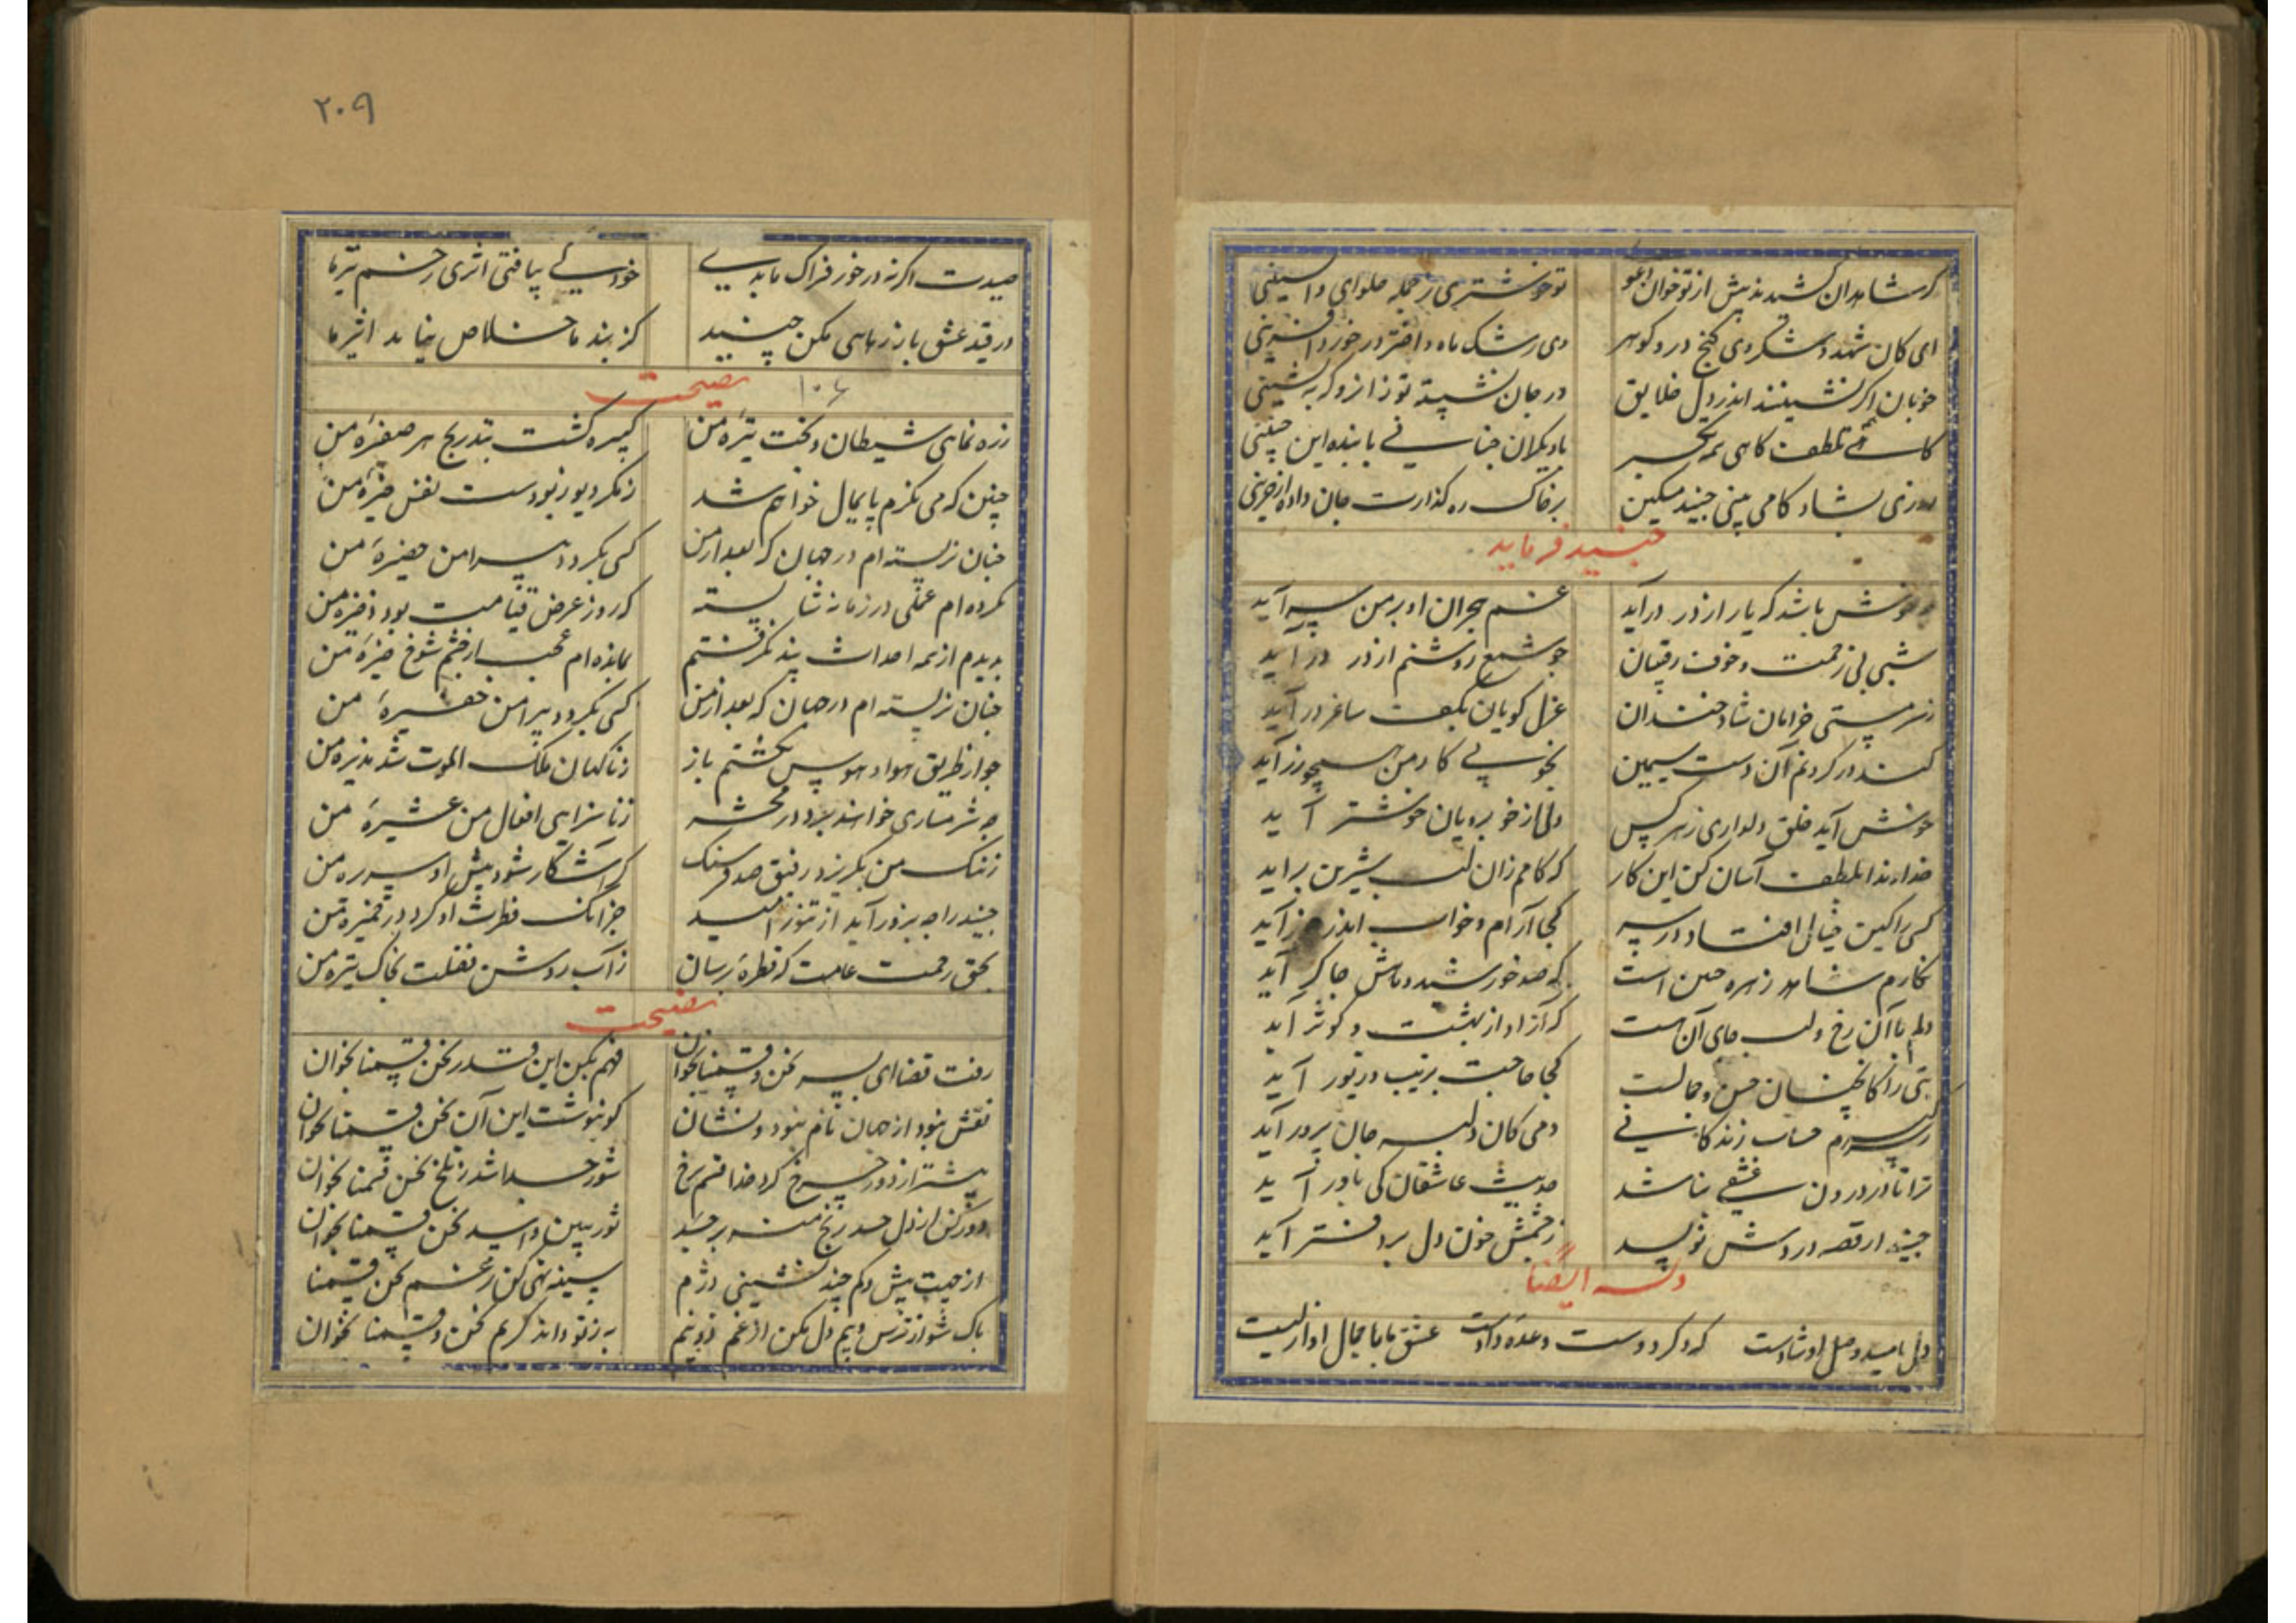 گر شاهدان کشیدند پیش از تو خوان
تو خوشتری ز جمله حلوای واپسینی
ای کان شهد و شکر وی گنج در و گوهر
وی رشک ماه و اختر در خورد آفرینی
خوبان اگر نشینند اندر دل خلایق
در جان نشسته تو زانرو که به نشینی
گاهی تکبر
با دیگران چنانی با بنده این چنینی
روزی بشادکامی بینی جنید مسکین
بر خاک ره گذارت جان داده از حزینی
جنید فرماید
خوش باشد که یار از در درآید
غم هجران او بر من سرآید
شبی بی زحمت و خوف رقیبان
چو شمع روشنم از در درآید
ز سرمستی خرامان شاد و خندان
غزل گویان بکف ساغر درآید
کند در گردنم آن دست سیمین
بخوبی کار من همچو زر آید
خوش آید خلق دلداری ز هر کس
ولی از خوبرویان خوشتر آید
خداوندا بلطف آسان کن این کار
که کامم زان لب شیرین برآید
کسی را کین خیال افتاد در سر
کجا آرام و خواب اندر آید
نگارم شاهد زهره جبین است
که صد خورشید و ماهش چاکر آید
دلم با آن رخ و لب جای آن هست
که آزاد از بهشت و کوثر آید
بتی را کانچنان حسن و جمالست
کجا حاجت بزیب و زیور آید
حساب زندگانی
دمی کان دلبر جان پرور آید
ترا تا در درون عشقی نباشد
حدیث عاشقان کی باور آید
جنید ار قصه دردش نویسد
ز چشمش خون دل بر دفتر آید
وله ایضا
دل بامید وصل او شادست
که دگر دوست وعده دادست
عشق ما با جمال او ازلیست
۲۰۹
صیدت اگر نه در خور فتراک ما بدی
خود کی بیافتی اثری زخم تیر ما
در قید عشق باز رهایی مکن جنید
کز بند ما خلاص نیابد اسیر ما
نصیحت
۱۰۶
ز ره نمای شیطان و بخت تیره من
کبیره گشت بتدریج هر صغیره من
چنین که می نگرم پایمال خواهم شد
ز مکر دیو ربودست نفس خیره من
چنان نزیسته ام در جهان که بعد از من
کسی بگردد پیرامن حضیره من
نکرده ام عملی در زمانه شایسته
که روز عرض قیامت بود ذخیره من
بدیدم از همه احداث پند نگرفتم
بمانده ام عجب از چشم شوخ خیره من
چنان نزیسته ام در جهان که بعد از من
کسی بگردد پیرامن حضیره من
چو از طریق هوا و هوس نگشتم باز
ز ناگهان ملک الموت شد پذیره من
چه شرمساری خواهند برد در محشر
ز ناسزایی افعال من عشیره من
ز ننگ من بگریزد رفیق صد فرسنگ
گر آشکار شود پیش او سریره من
جنید را چه بزور آید از تنور امید
جز آنک فطرت او گردد خمیره من
بحق رحمت عامت که قطره برسان
ز آب روشن فضلت بخاک تیره من
نصیحت
رفت قضا ای پسر نحن قسمنا بخوان
فهم بکن این قدر نحن قسمنا بخوان
نقش نبود از جهان نام نبود و نشان
کو بنوشت این و آن نحن قسمنا بخوان
پیشتر از دور چرخ کرد خدا قسم نرخ
شور حسد باشد ز تلخ نحن قسمنا بخوان
دور کن از دل حسد رنج منه بر جسد
نحن قسمنا بخوان
از جهت بیش و کم چند نشینی دژم
سینه تهی کن ز غم نحن قسمنا
پاک شو از ترس و بیم دل مکن از غم دو نیم
به ز تو داند کریم نحن قسمنا بخوان